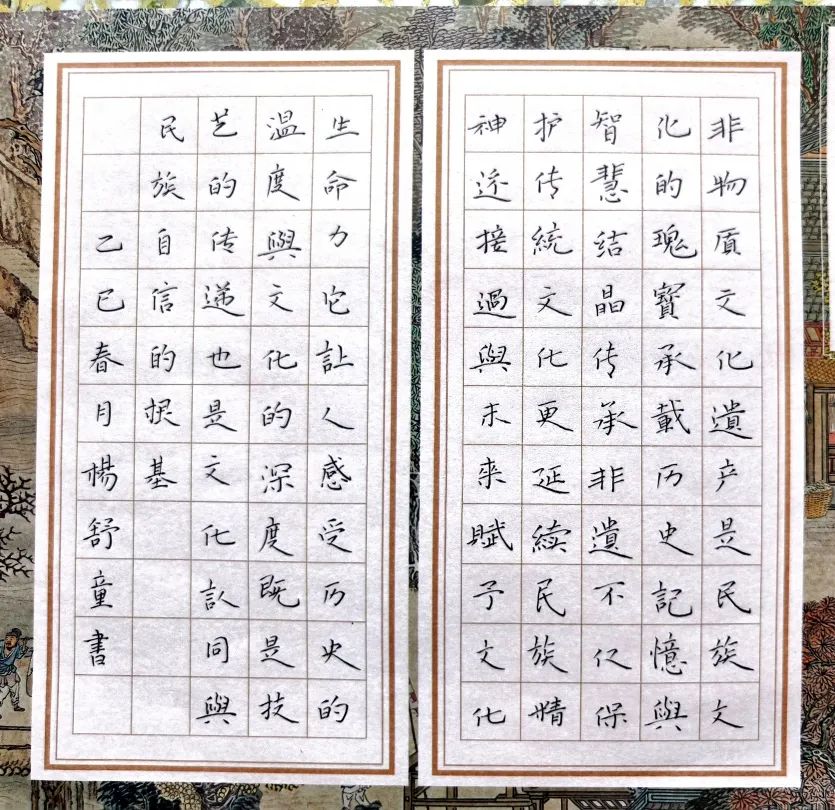 非物质文化遺产是民族文
化的瑰寶承載历史記憶與
智慧结晶传承非遺不仅保
护传統文化更延續民族精
神连接過與未来賦予文化
生命力它让人感受历史的
温度與文化的深度既是技
艺的传递也是文化认同與
民族自信的根基
乙巳春月楊舒童書